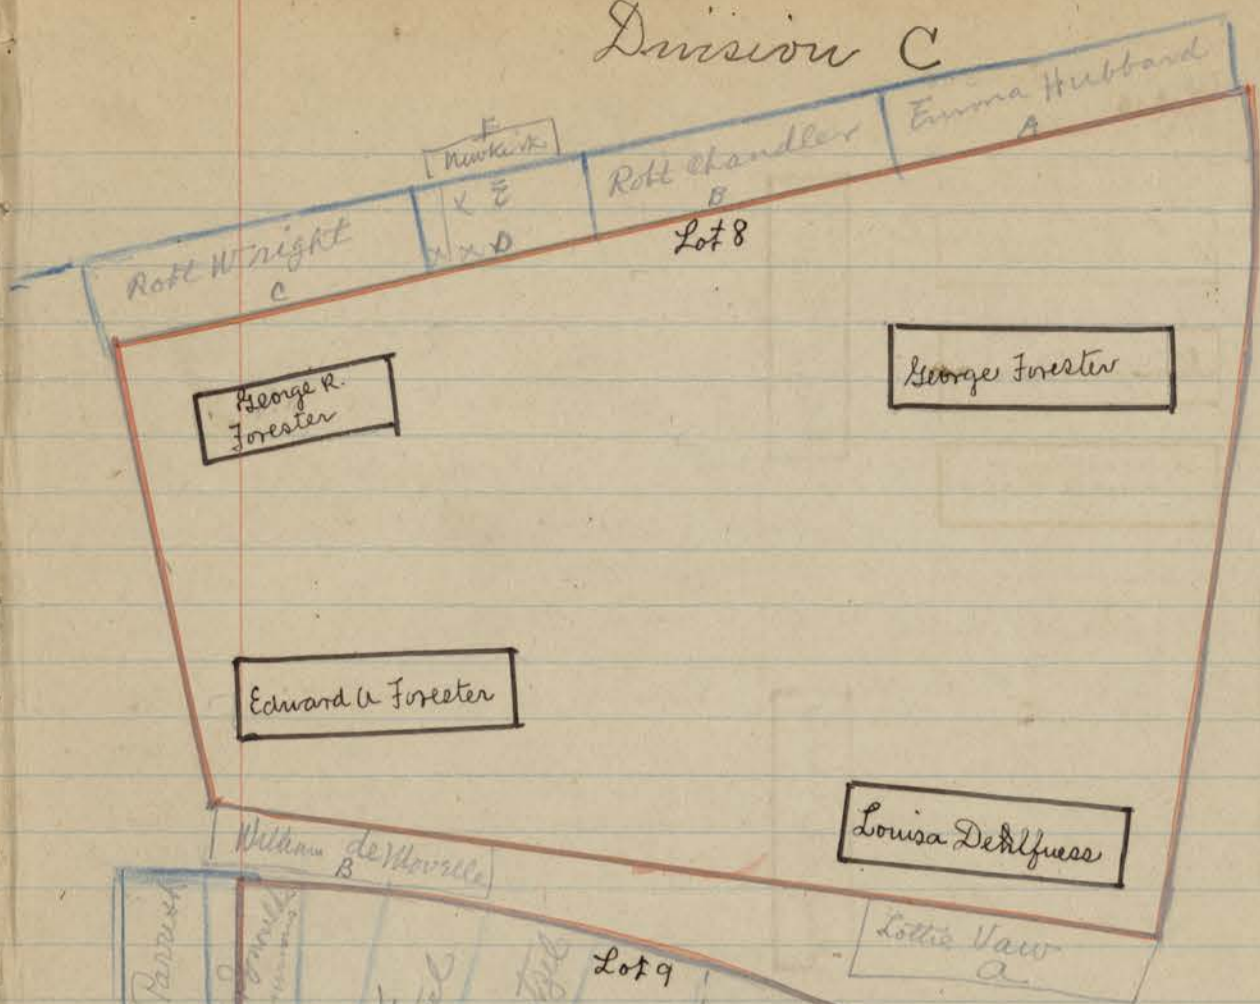 Division C
Emma Hubbard
A
Robt Chandler
B
F
Newkirk
X E
X X D
Robt Wright
C
Lot 8
George R.
Forester
George Forester
Edward A Forester
Louisa
William
B
Lottie
a
Parrish
Lot 9